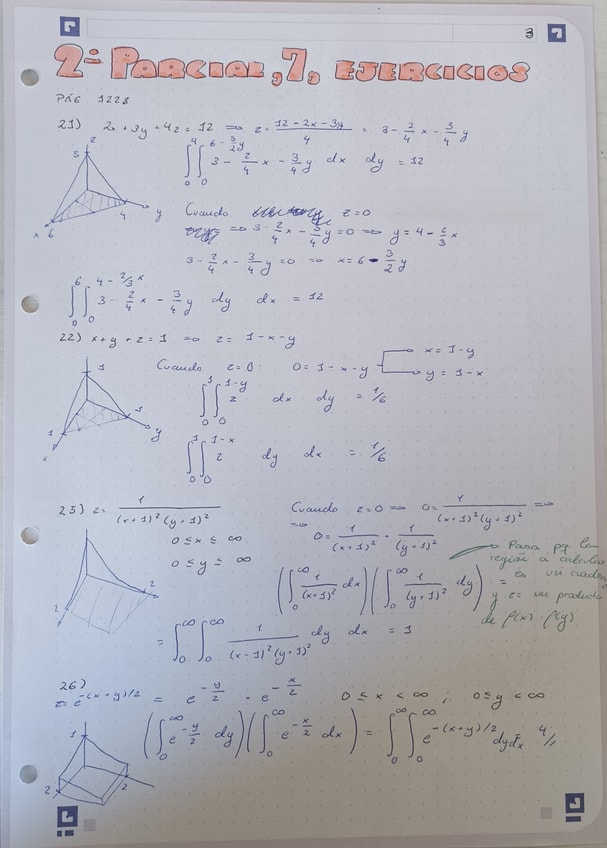 3
2º PARCIAL, 7, EJERCICIOS
PÁG 1228
21) 2x + 3y + 4z = 12 ⇒ z = (12 - 2x - 3y)/4 = 3 - 2/4 x - 3/4 y
z 3 4 y x 6
∫₀⁴ ∫₀^(6 - 3/2 y) 3 - 2/4 x - 3/4 y dx dy = 12
Cuando z = 0
⇒ 3 - 2/4 x - 3/4 y = 0 ⇒ y = 4 - 2/3 x
3 - 2/4 x - 3/4 y = 0 ⇒ x = 6 - 3/2 y
∫₀⁶ ∫₀^(4 - 2/3 x) 3 - 2/4 x - 3/4 y dy dx = 12
22) x + y + z = 1 ⇒ z = 1 - x - y
Cuando z = 0 0 = 1 - x - y x = 1 - y
y = 1 - x
1 1 y 1 x
∫₀¹ ∫₀^(1-y) z dx dy = 1/6
∫₀¹ ∫₀^(1-x) z dy dx = 1/6
25) z = 1/((x+1)²(y+1)²)
Cuando z = 0 ⇒ 0 = 1/((x+1)²(y+1)²) ⇒
0 ≤ x ≤ ∞
⇒ 0 = 1/(x+1)² · 1/(y+1)²
0 ≤ y ≤ ∞
Pasa pq la
región a calcular
es un cuadra
y z = un producto
de f(x) · f(y)
(∫₀^∞ 1/(x+1)² dx)(∫₀^∞ 1/(y+1)² dy) =
2 2
= ∫₀^∞ ∫₀^∞ 1/((x-1)²(y+1)²) dy dx = 1
26)
z = e^(-(x+y)/2) = e^(-y/2) · e^(-x/2) 0 ≤ x < ∞ ; 0 ≤ y < ∞
(∫₀^∞ e^(-y/2) dy)(∫₀^∞ e^(-x/2) dx) = ∫₀^∞ ∫₀^∞ e^(-(x+y)/2) dy dx 4
1 2 2